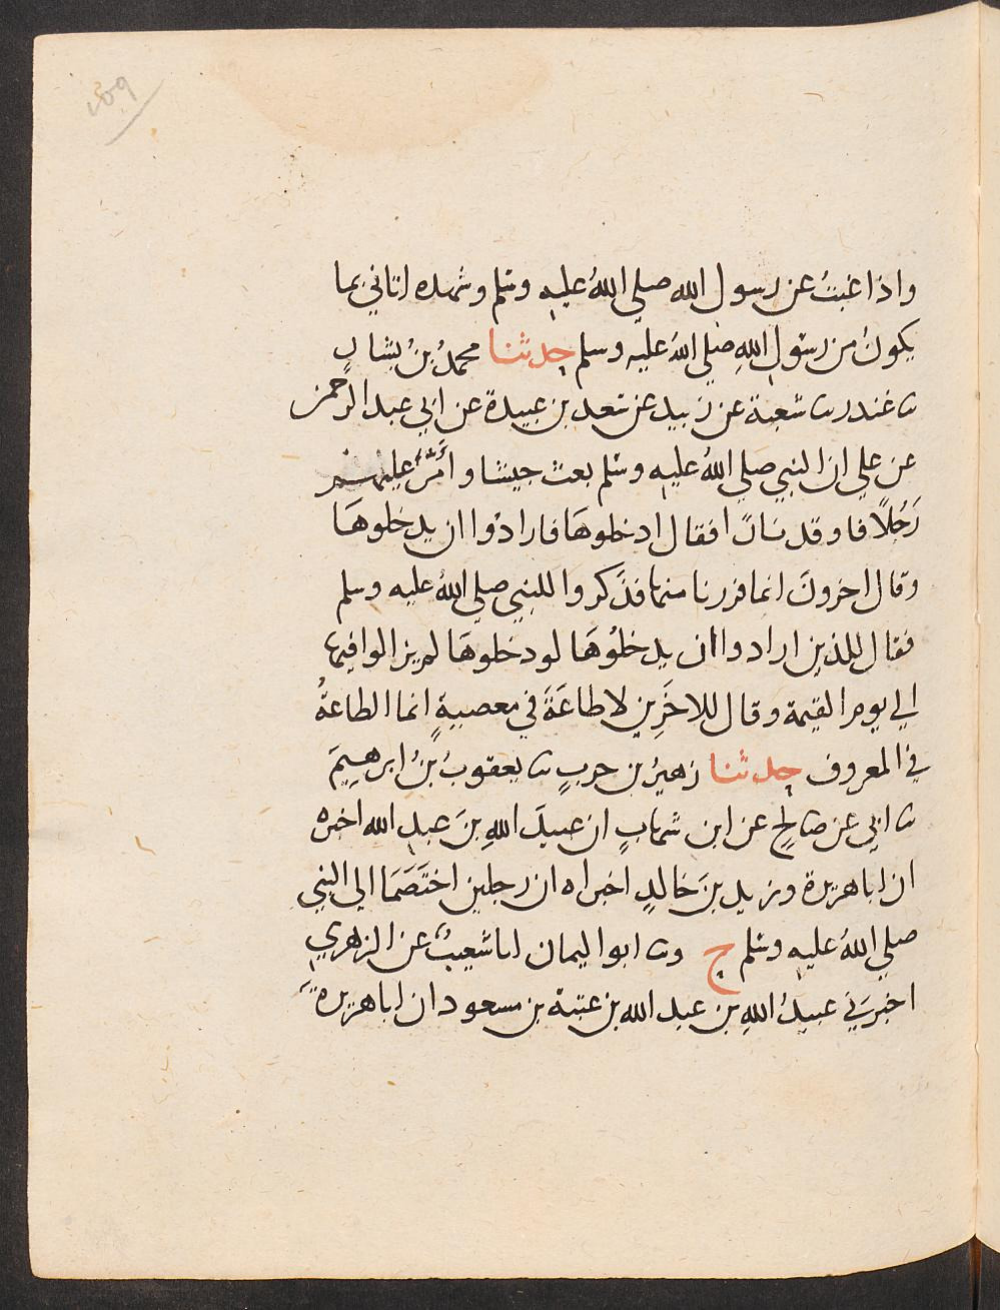 واذا غبتُ عن رسول الله صلي اللهُ عليه وسلم وشهده اتاني بما
يكونُ من رسولِ اللهِ صلي اللهُ عليه وسلم حدثنا محمدُ بنُ بشارٍ
ثنا غندر ثنا شعبة عن زبيد عن سعد بن عبيدة عن ابي عبد الرحمن
عن علي ان النبي صلي اللهُ عليه وسلم بعث جيشا وامَّر عليهم
رَجُلًا فاوقد نارًا فقال ادخلوهَا فارادُوا ان يدخلوهَا
وقال اخرونَ انما فررنا منها فذكروا للنبي صلي اللهُ عليه وسلم
فقال للذين ارادوا ان يدخلُوهَا لو دخلوهَا لم يزالوا فيها
الي يوم القيمة وقال للاخَرِين لا طاعَةَ في معصيةٍ انما الطاعةُ
في المعروف حدثنا زهيرُ بن حربٍ ثنا يعقوبُ بنُ ابرهيمَ
ثنا ابي عن صالحٍ عن ابن شهابٍ ان عبيدَ اللهِ بنَ عبدِ الله اخبره
ان ابا هريرة وزيد بنَ خالدٍ اخبراه ان رجلين اختَصَمَا الي النبي
صلي اللهُ عليه وسلم ح وثنا ابو اليمان انا شعيبٌ عن الزهري
اخبرَني عبيدُ اللهِ بن عبد الله بن عتبة بن مسعود ان ابا هريرة